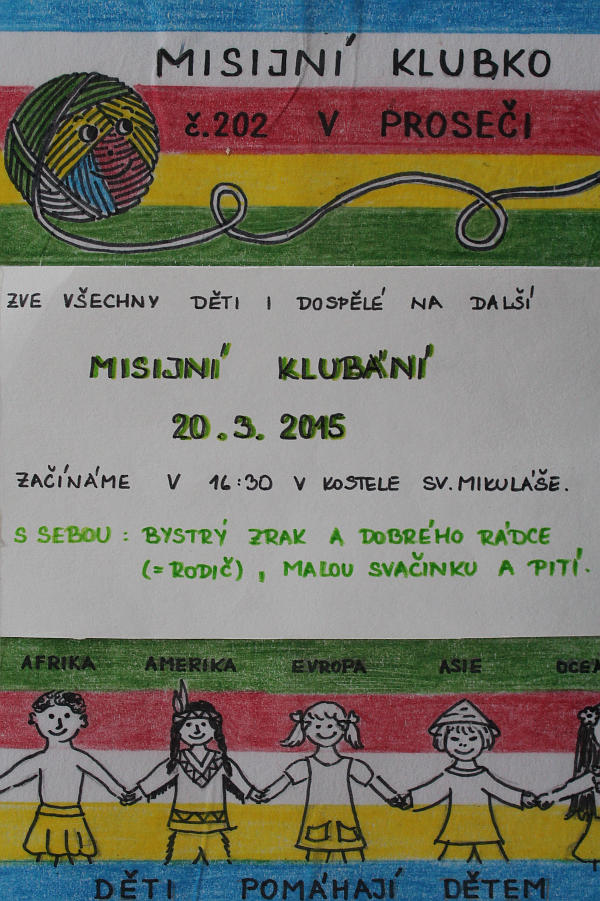 MISIJNÍ KLUBKO
č.202 V PROSEČI
ZVE VŠECHNY DĚTI I DOSPĚLÉ NA DALŠÍ
MISIJNÍ KLUBÁNÍ
20.3. 2015
ZAČÍNÁME V 16:30 V KOSTELE SV. MIKULÁŠE.
S SEBOU: BYSTRÝ ZRAK A DOBRÉHO RÁDCE
(=RODIČ), MALOU SVAČINKU A PITÍ.
AFRIKA AMERIKA EVROPA ASIE
DĚTI POMÁHAJÍ DĚTEM